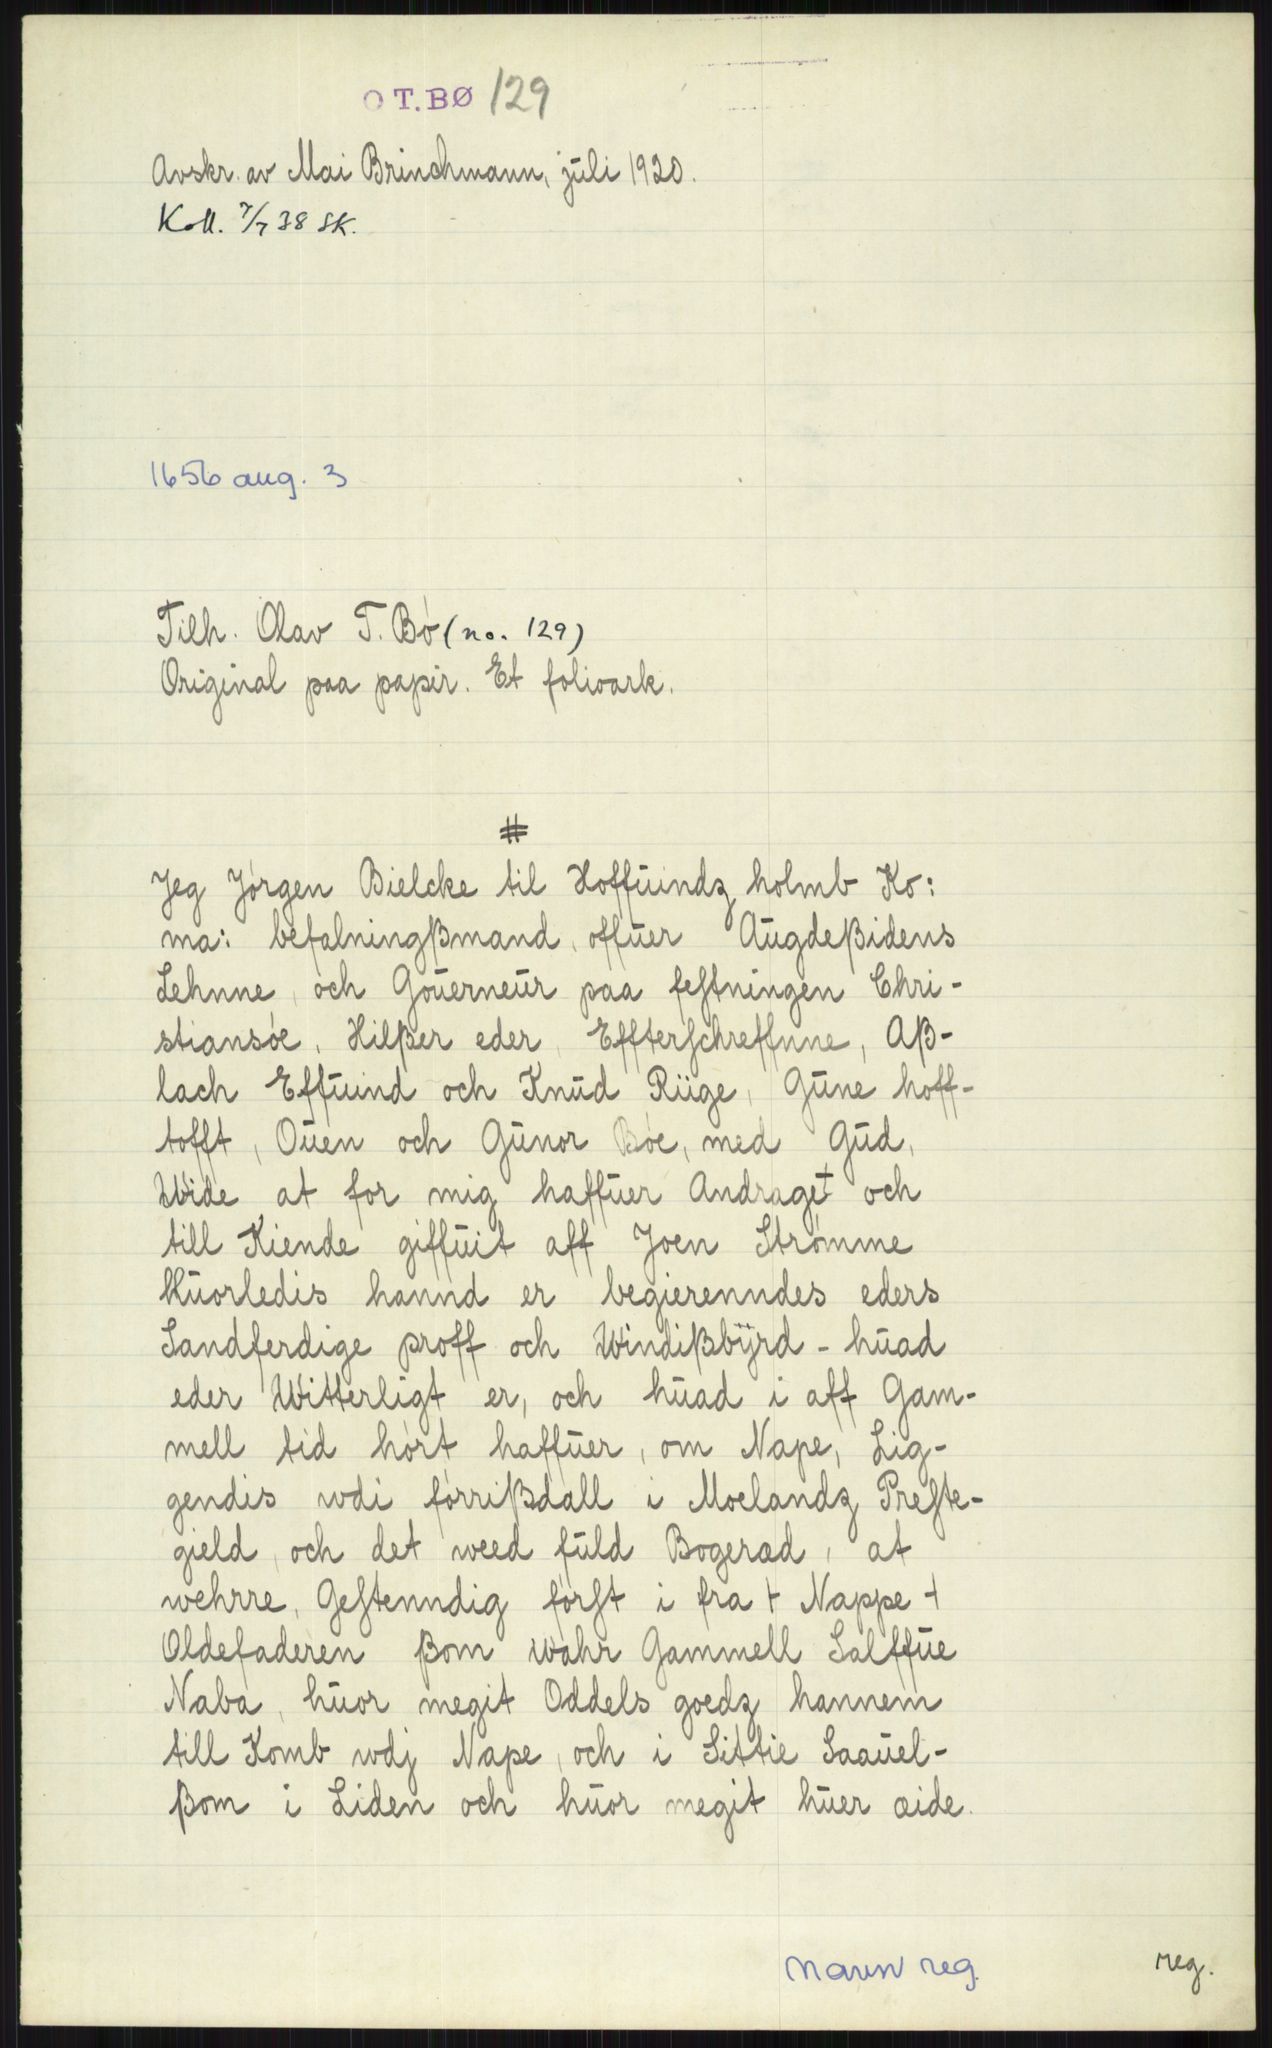 O T. BØ 129
Avskr. av Mai Brinchmann, juli 1920.
Koll. 7/7 38 SK.
1656 aug. 3
Tilh. Olav T. Bø (no. 129)
Original paa papir. Et folioark.
#
Jeg Jørgen Bielcke til Hoffuindz holmb Ko:
ma: befalningßmand, offuer Augdeßidens
Lehnne, och Gouerneur paa festningen Chri-
stiansøe, Hilßer eder, Effterschreffnne, Aß-
lach Effuind och Knud Riige, Gune hoff-
tofft, Ouen och Gunor Bøe, med Gud,
Wide at for mig haffuer Andraget och
till Kiende giffuit aff Joen Strømme
Huorledis hannd er begierenndes eders
Sandferdige proff och Windißbÿrd - huad
eder Witterligt er, och huad i aff Gam-
mell tid hørt haffuer, om Nape, Lig-
gendis wdi førrißdall i Moelandz Preste-
gield, och det weed fuld Bogerad, at
wehrre, Gestenndig først i fra + Nappe +
Oldefaderen ßom wahr Gammell Salffue
Naba, huor megit Oddels goedz hannem
till Komb wdj Nape, och i Littie Saauel-
ßom i Liden och huor megit huer æide.
Navn reg.
reg.